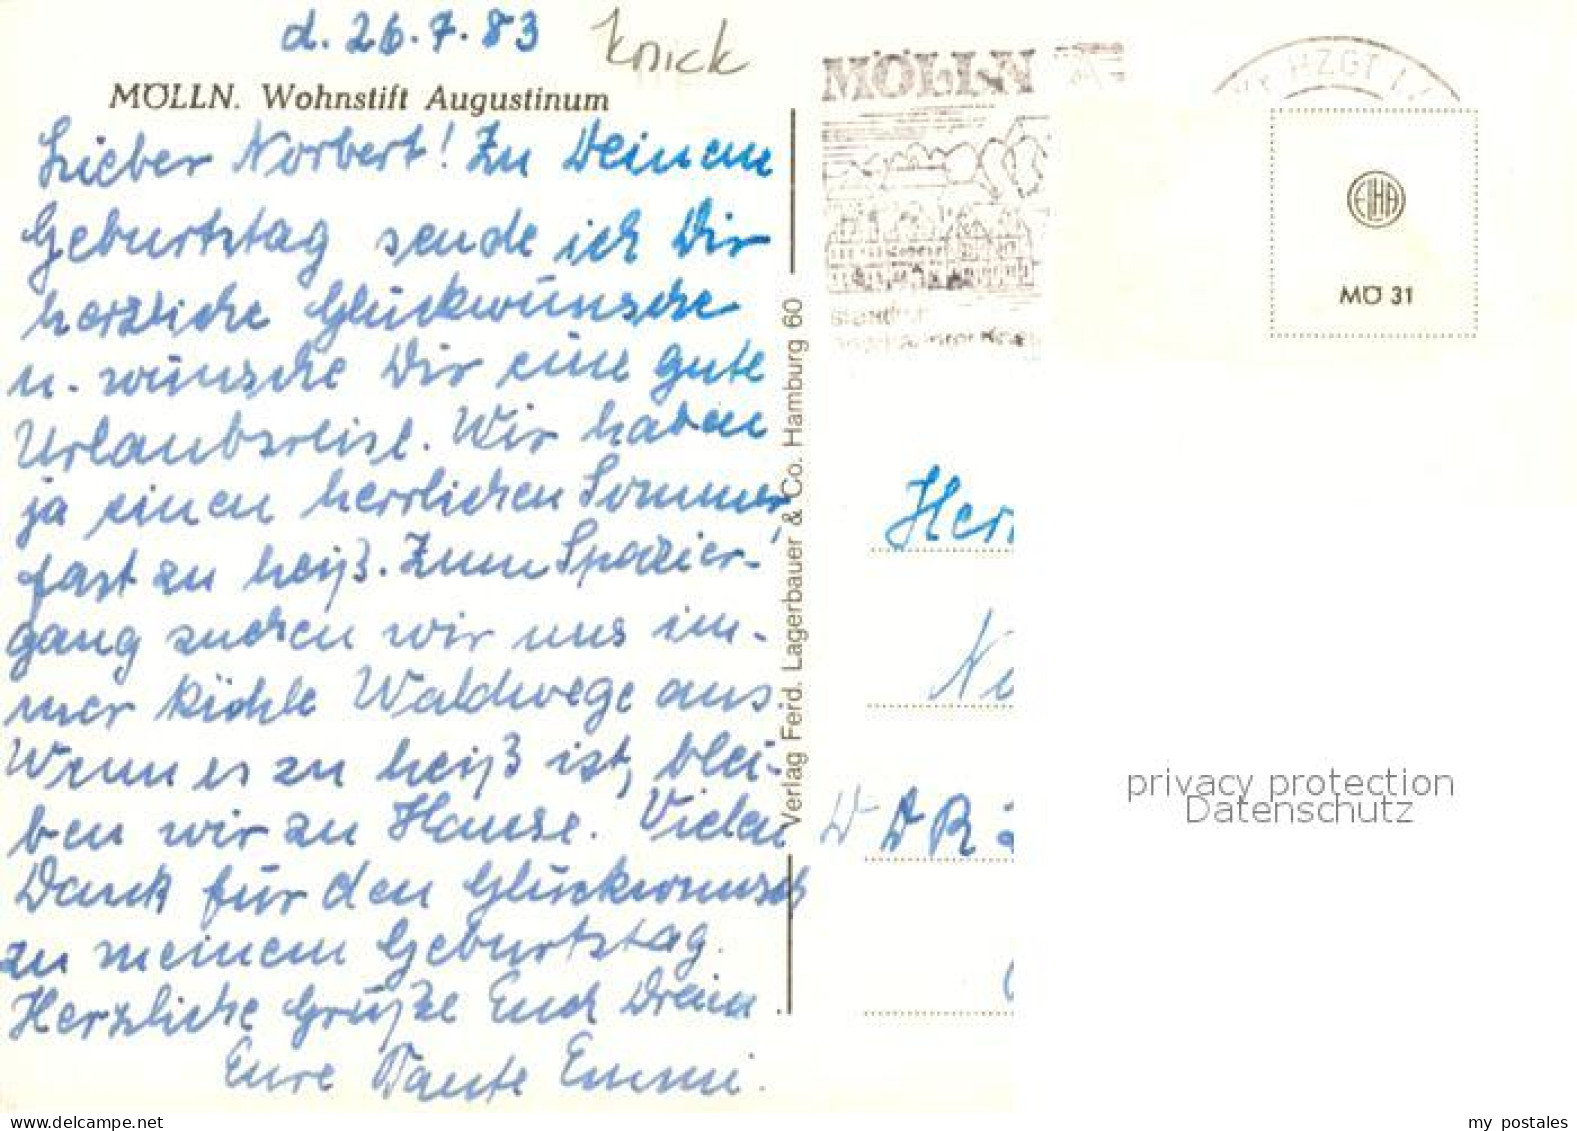 d. 26.7.83
Knick
MÖLLN. Wohnstift Augustinum
Lieber Norbert! Zu Deinem
Geburtstag sende ich Dir
herzliche Glückwünsche
u. wünsche Dir eine gute
Urlaubsreise. Wir haben
ja einen herrlichen Sommer,
fast zu heiß. Zum Spazier-
gang suchen wir uns im-
mer kühle Waldwege aus
Wenn es zu heiß ist, blei-
ben wir zu Hause. Vielen
Dank für den Glückwunsch
zu meinem Geburtstag.
Herzliche Grüße Euch Dreien.
Eure Tante Emmi.
Verlag Ferd. Lagerbauer & Co. Hamburg 60
MÖLLN
HZGT
EILHA
MÖ 31
Her
DDR
privacy protection
Datenschutz
my postales